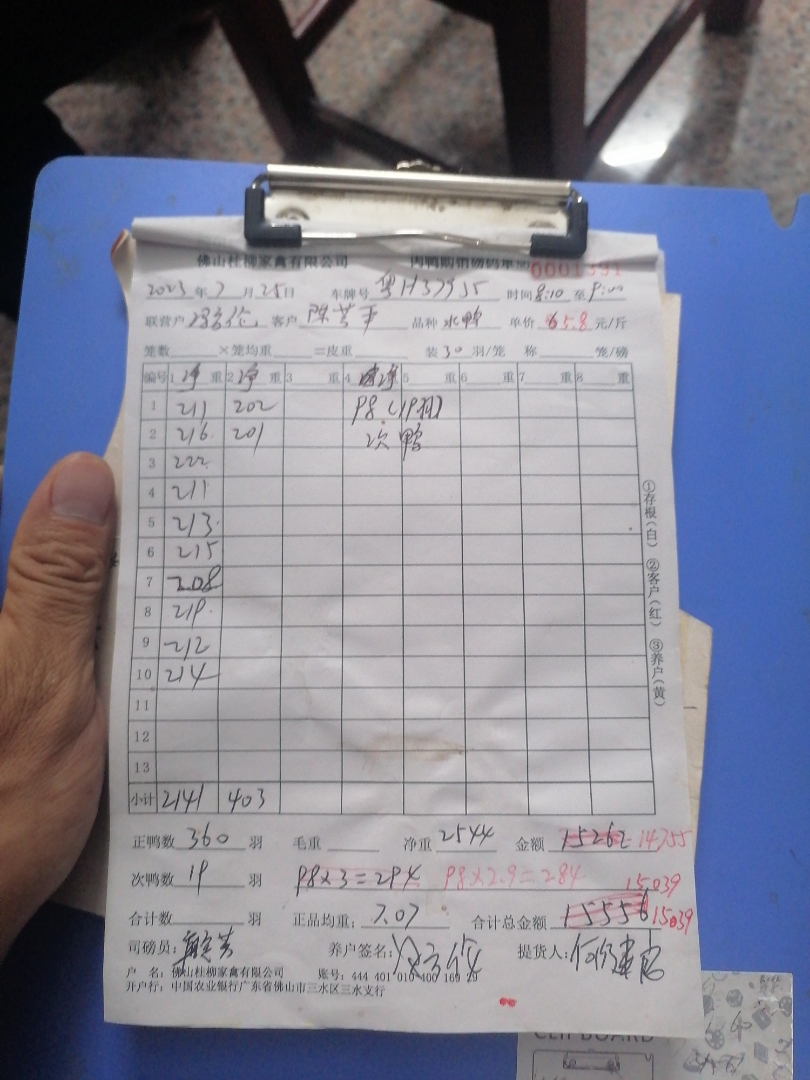 佛山桂柳家禽有限公司 肉鸭购销磅码单 0001391
2023年7月25日 车牌号 粤H37955 时间8:10至9:00
联营户 客户 陈 品种 水鸭 单价 5.8 元/斤
笼数 ×笼均重 =皮重 装30羽/笼 称 笼/磅
编号 1 净重 2 净重 3 重 4 净 5 重 6 重 7 重 8 重
1 211 202 98(19羽)
2 216 201 次鸭
3 222
4 211
5 213
6 215
7 208
8 219
9 212
10 214
11
12
13
小计 2141 403
①存根(白) ②客户(红) ③养户(黄)
正鸭数 360 羽 毛重 净重 2544 金额 15262 14755
次鸭数 19 羽 98×3=294 98×2.9=284 15039
合计数 羽 正品均重: 7.07 合计总金额 15556 15039
司磅员: 养户签名: 提货人:
户 名: 佛山桂柳家禽有限公司 账号: 444 401 010 400 169 29
开户行: 中国农业银行广东省佛山市三水区三水支行
CLIPBOARD